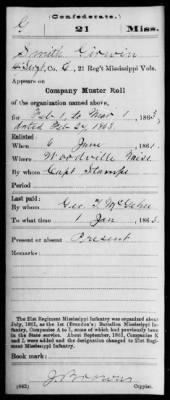 (Confederate.)
G 21 Miss.
Smith
Sergt, Co. G, 21 Reg't Mississippi Vols.
Appears on
Company Muster Roll
of the organization named above,
for Feb 1 to Mar 1, 1863,
dated Feb 1863.
Enlisted:
When 6 June, 1861.
Where Woodville Miss.
By whom Capt Stamps
Period
Last paid:
By whom Geo. T. McGehee
To what time 1 Jan, 1863.
Present or absent Present
Remarks:
The 21st Regiment Mississippi Infantry was organized about
July, 1861, as the 1st (Brandon's) Battalion Mississippi In-
fantry, Companies A to I, some of which had previously been
in the State service. About September, 1861, Companies K
and L were added and the designation changed to 21st Regi-
ment Mississippi Infantry.
Book mark:
(642) Copyist.